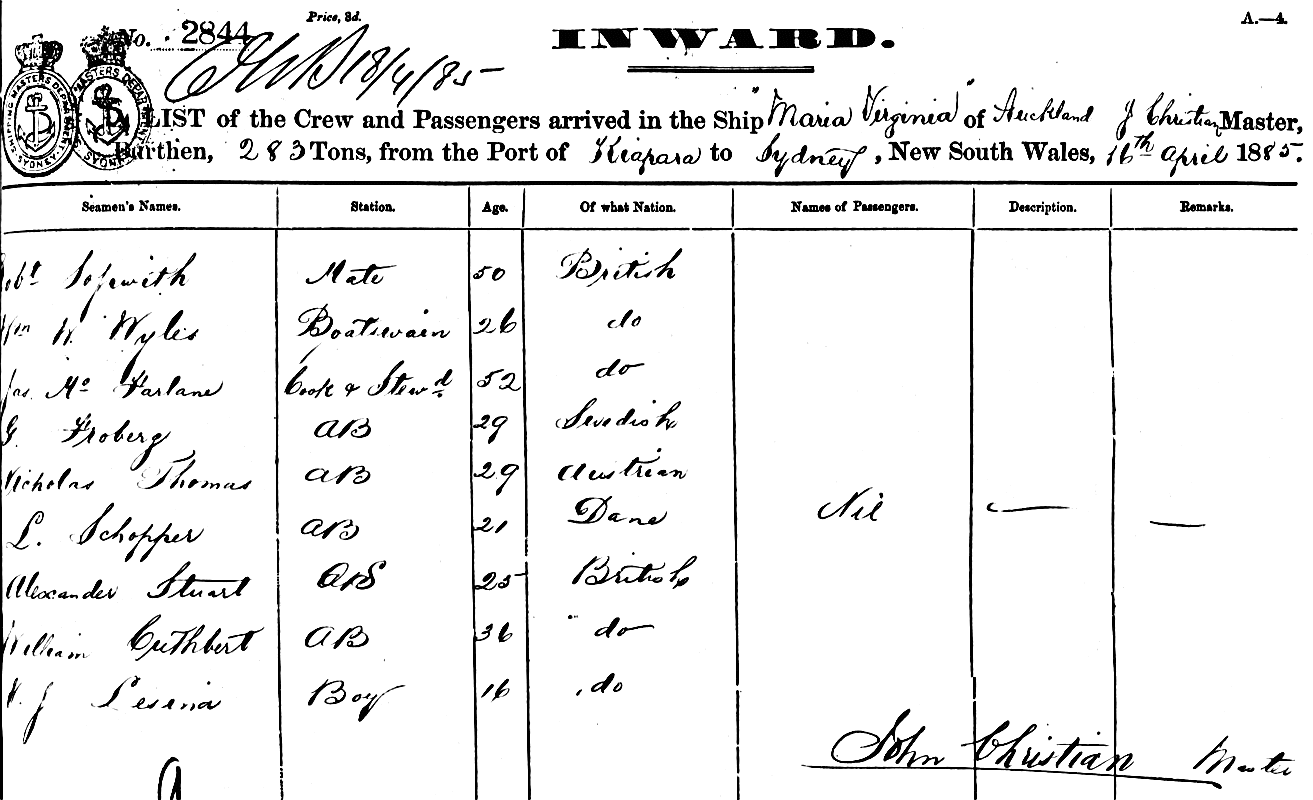 Price, 3d.
A.—4.
No. 2844
INWARD.
18/4/85
LIST of the Crew and Passengers arrived in the Ship "Maria Virginia" of Auckland J Christian Master,
Burthen, 283 Tons, from the Port of Kiapara to Sydney, New South Wales, 16th April 1885.
Seamen's Names. Station. Age. Of what Nation. Names of Passengers. Description. Remarks.
Robt Sopwith Mate 50 British
Wm W. Wylis Boatswain 26 do
Jas. Mc Farlane Cook & Stewd 52 do
G. Froberg AB 29 Swedish
Nicholas Thomas AB 29 Austrian
L. Schopper AB 21 Dane Nil — —
Alexander Stuart 25 British
William Cuthbert AB 36 do
J Lesina Boy 16 do
John Christian Master